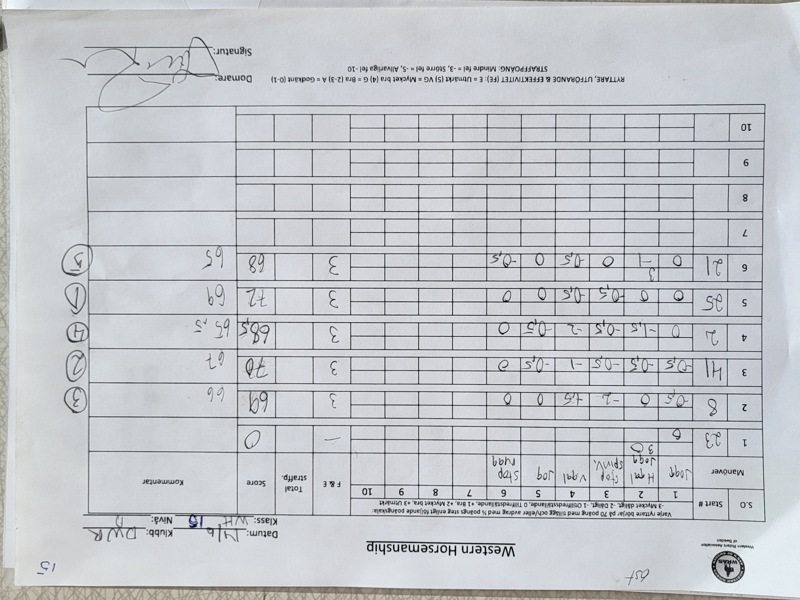 15
WRAS
Western Riders Association
of Sweden
Western Horsemanship
Datum: 14/6 Klubb: DWR
Klass: WH 15 Nivå:
Varje ryttare börjar på 70 poäng med tillägg och/eller avdrag med ½ poängs steg enligt följande poängskala:
-3 Mycket dåligt, -2 Dåligt, -1 Otillfredsställande, 0 Tillfredsställande, +1 Bra, +2 Mycket bra, +3 Utmärkt
S.O Start # 1 2 3 4 5 6 7 8 9 10 F & E Total straffp. Score Kommentar
Manöver Jogg H gal Jogg Stop spin V. V gal Jog Stop rygg
1 23 0 30 — 0
2 8 -0,5 0 -2 +,5 0 0 3 69 66 3
3 41 -0,5 -0,5 -0,5 -1 -0,5 0 3 70 67 2
4 2 0 -1,5 -0,5 -2 -0,5 0 3 68,5 65,5 4
5 25 0 0 -0,5 -0,5 0 0 3 72 69 1
6 21 0 -1 3 0 -0,5 0 -0,5 3 68 65 5
7
8
9
10
RYTTARE, UTFÖRANDE & EFFEKTIVITET (FE): E = Utmärkt (5) VG = Mycket bra (4) G = Bra (2-3) A = Godkänt (0-1)
STRAFFPOÄNG: Mindre fel = -3, Större fel = -5, Allvarliga fel -10
Domare:
Signatur: